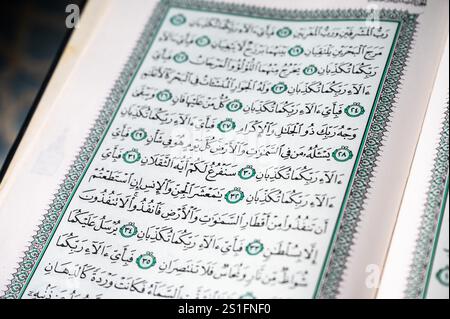 رَبُّ ٱلْمَشْرِقَيْنِ وَرَبُّ ٱلْمَغْرِبَيْنِ ١٧ فَبِأَيِّ ءَالَآءِ رَبِّكُمَا تُكَذِّبَانِ ١٨
مَرَجَ ٱلْبَحْرَيْنِ يَلْتَقِيَانِ ١٩ بَيْنَهُمَا بَرْزَخٌ لَّا يَبْغِيَانِ ٢٠ فَبِأَيِّ ءَالَآءِ
رَبِّكُمَا تُكَذِّبَانِ ٢١ يَخْرُجُ مِنْهُمَا ٱللُّؤْلُؤُ وَٱلْمَرْجَانُ ٢٢ فَبِأَيِّ
ءَالَآءِ رَبِّكُمَا تُكَذِّبَانِ ٢٣ وَلَهُ ٱلْجَوَارِ ٱلْمُنشَـَٔاتُ فِي ٱلْبَحْرِ كَٱلْأَعْلَٰمِ
٢٤ فَبِأَيِّ ءَالَآءِ رَبِّكُمَا تُكَذِّبَانِ ٢٥ كُلُّ مَنْ عَلَيْهَا فَانٍ ٢٦ وَيَبْقَىٰ
وَجْهُ رَبِّكَ ذُو ٱلْجَلَٰلِ وَٱلْإِكْرَامِ ٢٧ فَبِأَيِّ ءَالَآءِ رَبِّكُمَا تُكَذِّبَانِ
٢٨ يَسْـَٔلُهُۥ مَن فِي ٱلسَّمَٰوَٰتِ وَٱلْأَرْضِ كُلَّ يَوْمٍ هُوَ فِي شَأْنٍ ٢٩ فَبِأَيِّ
ءَالَآءِ رَبِّكُمَا تُكَذِّبَانِ ٣٠ سَنَفْرُغُ لَكُمْ أَيُّهَ ٱلثَّقَلَانِ ٣١ فَبِأَيِّ
ءَالَآءِ رَبِّكُمَا تُكَذِّبَانِ ٣٢ يَٰمَعْشَرَ ٱلْجِنِّ وَٱلْإِنسِ إِنِ ٱسْتَطَعْتُمْ
أَن تَنفُذُوا۟ مِنْ أَقْطَارِ ٱلسَّمَٰوَٰتِ وَٱلْأَرْضِ فَٱنفُذُوا۟ لَا تَنفُذُونَ
إِلَّا بِسُلْطَٰنٍ ٣٣ فَبِأَيِّ ءَالَآءِ رَبِّكُمَا تُكَذِّبَانِ ٣٤ يُرْسَلُ عَلَيْكُمَا
شُوَاظٌ مِّن نَّارٍ وَنُحَاسٌ فَلَا تَنتَصِرَانِ ٣٥ فَبِأَيِّ ءَالَآءِ رَبِّكُمَا
تُكَذِّبَانِ ٣٦ فَإِذَا ٱنشَقَّتِ ٱلسَّمَآءُ فَكَانَتْ وَرْدَةً كَٱلدِّهَانِ